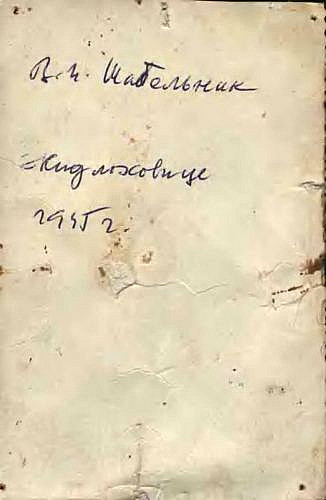 В.И. Шабельник
Жидлоховице
1945 г.